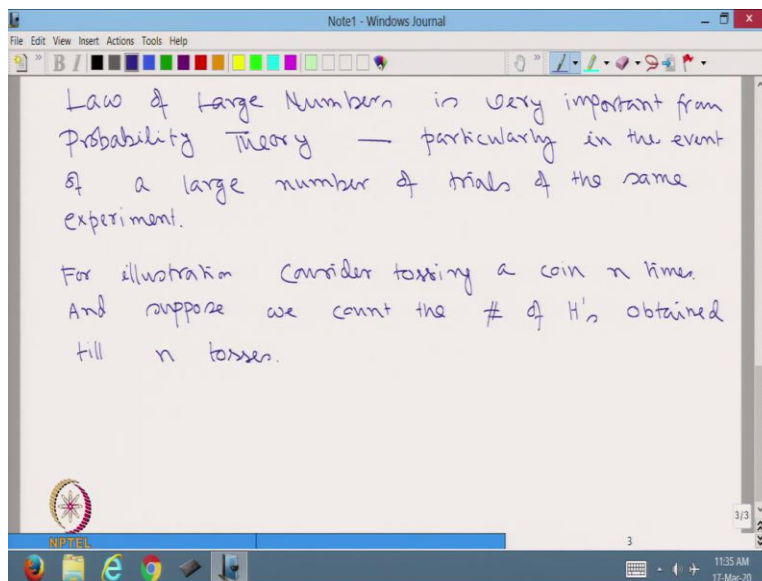 Note1 - Windows Journal
File Edit View Insert Actions Tools Help
B I
Law of Large Numbers is very important from
Probability Theory — particularly in the event
of a large number of trials of the same
experiment.
For illustration Consider tossing a coin n times.
And suppose we count the # of H's obtained
till n tosses.
NPTEL
3/3
3
11:35 AM
17-Mar-20